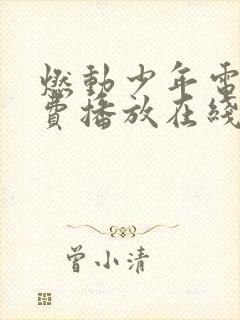 燃動少年電
費播放在綫
曾小清